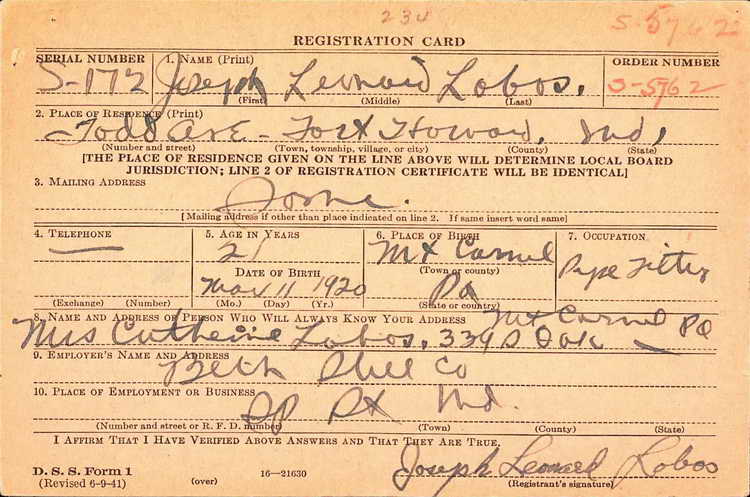 234
S-5762
REGISTRATION CARD
SERIAL NUMBER 1. NAME (Print) ORDER NUMBER
S-172 Joseph Leonard Lobos. S-5762
(First) (Middle) (Last)
2. PLACE OF RESIDENCE (Print)
Todd Ave - Fort Howard, Md,
(Number and street) (Town, township, village, or city) (County) (State)
[THE PLACE OF RESIDENCE GIVEN ON THE LINE ABOVE WILL DETERMINE LOCAL BOARD
JURISDICTION; LINE 2 OF REGISTRATION CERTIFICATE WILL BE IDENTICAL]
3. MAILING ADDRESS
Same.
[Mailing address if other than place indicated on line 2. If same insert word same]
4. TELEPHONE 5. AGE IN YEARS 6. PLACE OF BIRTH 7. OCCUPATION
21 Mt Carmel Pipe Fitter
(Town or county)
DATE OF BIRTH
Mar 11 1920 Pa
(Exchange) (Number) (Mo.) (Day) (Yr.) (State or country)
8. NAME AND ADDRESS OF PERSON WHO WILL ALWAYS KNOW YOUR ADDRESS Mt Carmel Pa
Mrs Catherine Lobos, 339 S Oak
9. EMPLOYER'S NAME AND ADDRESS
Beth Steel Co
10. PLACE OF EMPLOYMENT OR BUSINESS
Sp Pt Md.
(Number and street or R. F. D. number) (Town) (County) (State)
I AFFIRM THAT I HAVE VERIFIED ABOVE ANSWERS AND THAT THEY ARE TRUE.
Joseph Leonard Lobos
D. S. S. Form 1
(Revised 6-9-41) (over) 16—21630 (Registrant's signature)